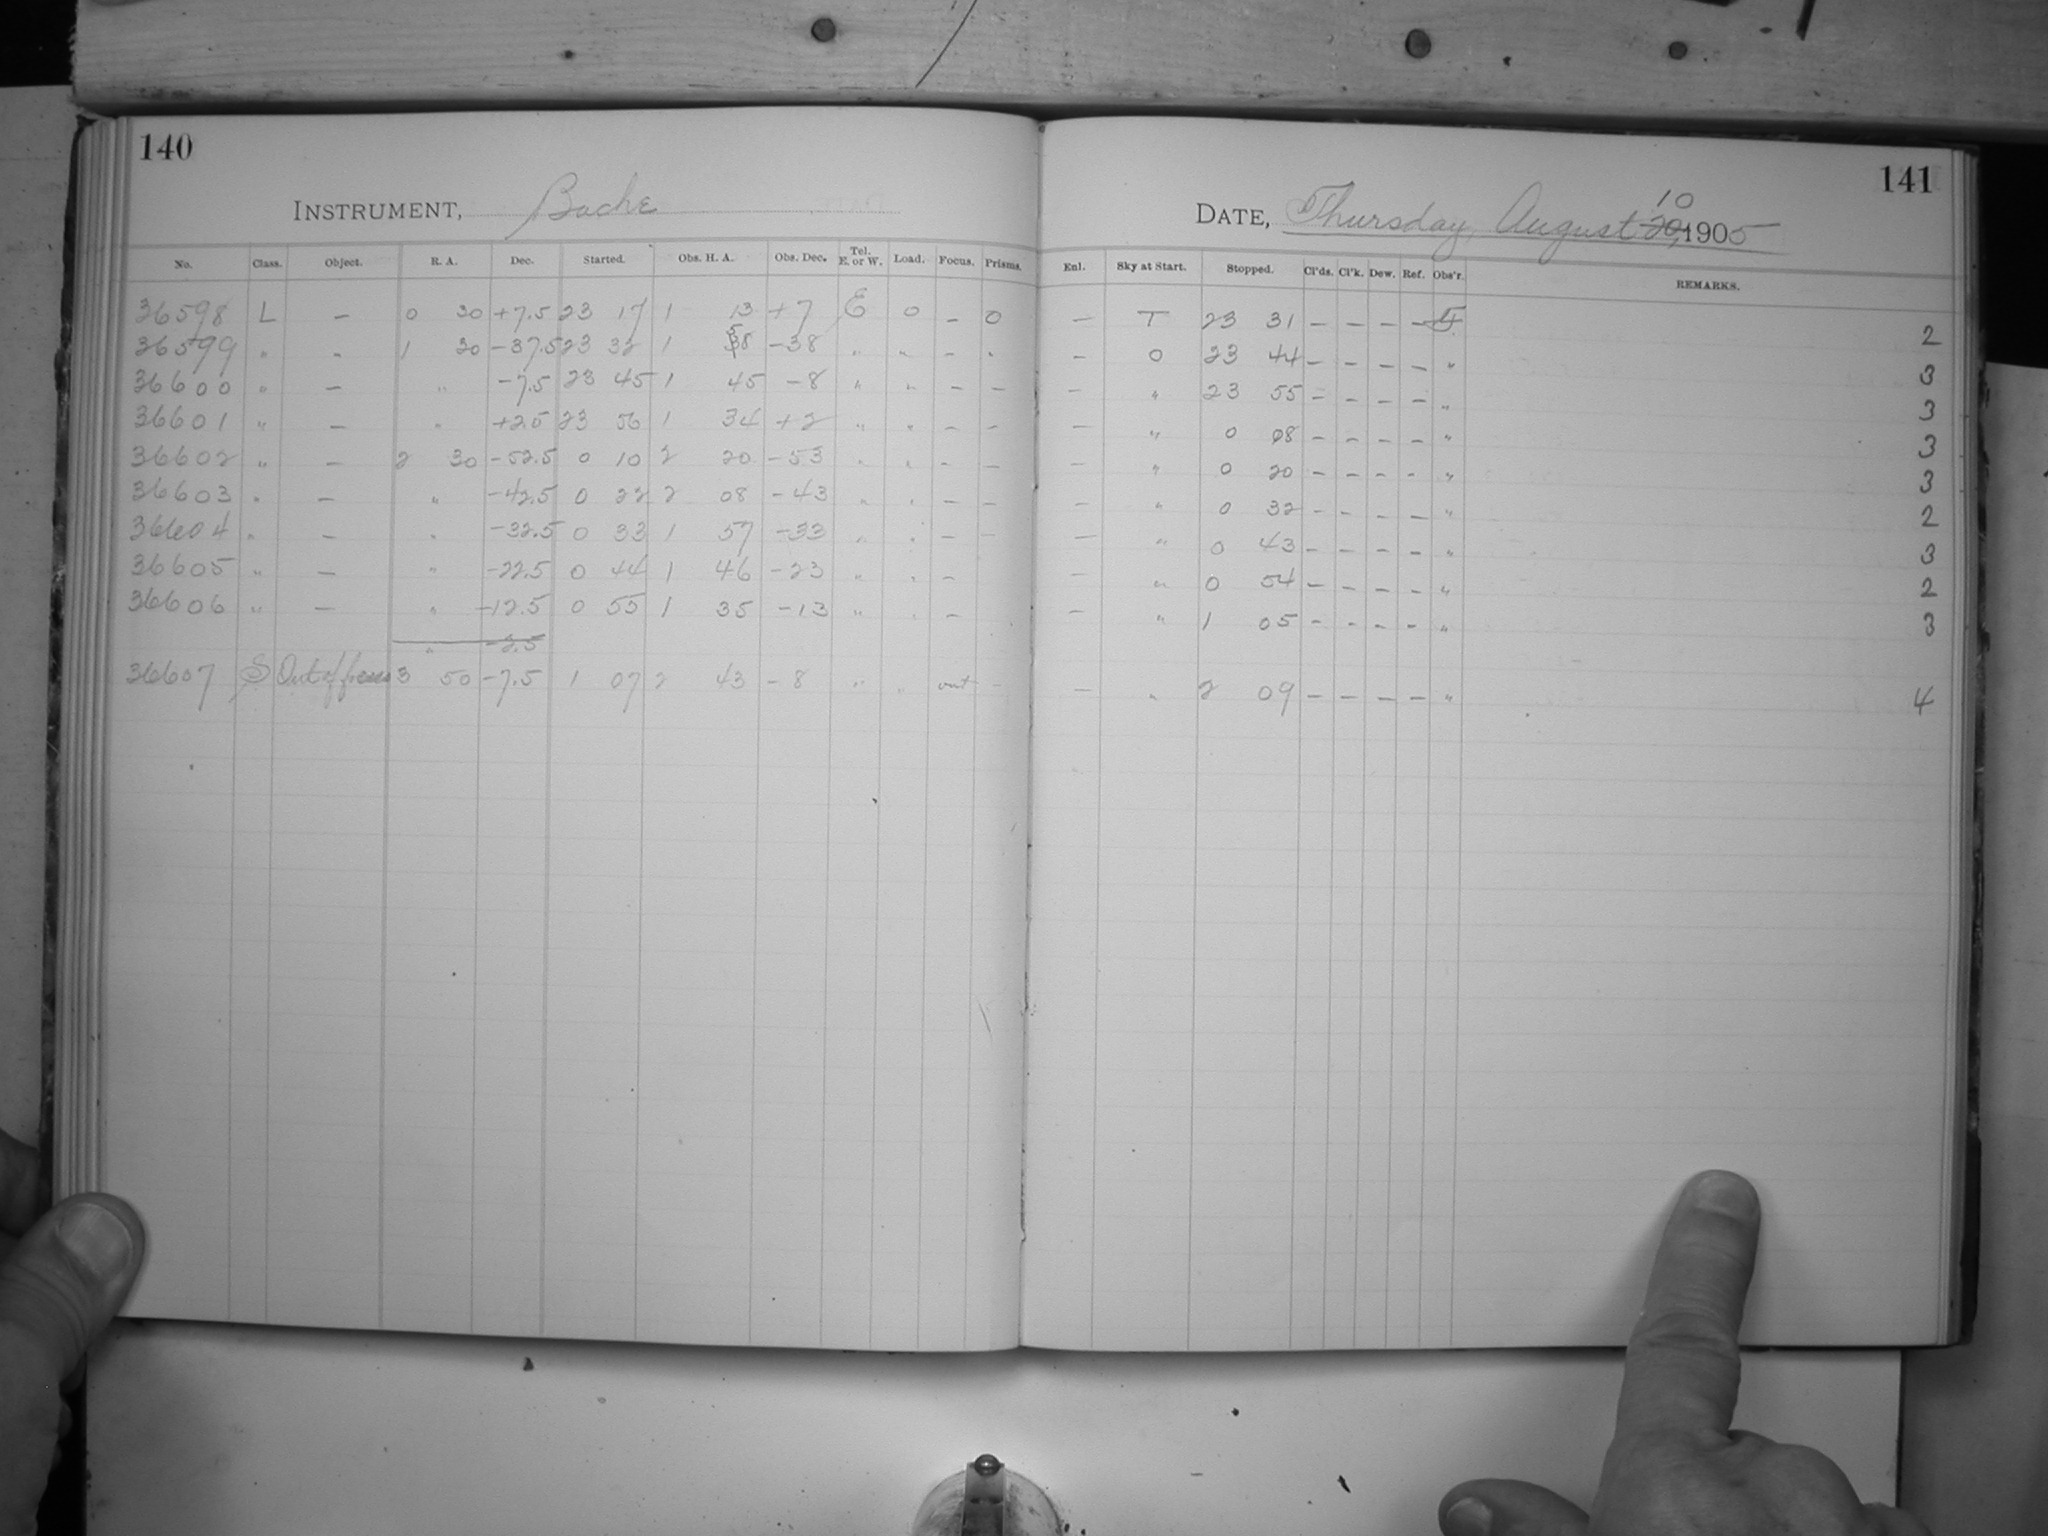 140
INSTRUMENT, Bache
No. Class. Object. R. A. Dec. Started. Obs. H. A. Obs. Dec. Tel. E. or W. Load. Focus. Prisms.
36598 L – 0 30 +7.5 23 17 1 13 +7 E 0 – 0
36599 " " 1 30 -37.5 23 32 1 58 -38 " " – "
36600 " – " -7.5 23 45 1 45 -8 " " – –
36601 " – " +2.5 23 56 1 34 +2 " " – –
36602 " – 2 30 -52.5 0 10 2 20 -53 " " – –
36603 " – " -42.5 0 22 2 08 -43 " " – –
36604 " – " -32.5 0 33 1 57 -33 " " – –
36605 " – " -22.5 0 44 1 46 -23 " " –
36606 " – " -12.5 0 55 1 35 -13 " " –
" -2.5
36607 S Out of focus 3 50 -7.5 1 07 2 43 -8 " " out –
141
DATE, Thursday, August 20, 10 1905
Enl. Sky at Start. Stopped. Cl'ds. Cl'k. Dew. Ref. Obs'r. REMARKS.
– T 23 31 – – – – 2
– 0 23 44 – – – – " 3
– " 23 55 – – – – " 3
– " 0 08 – – – – " 3
– " 0 20 – – – – " 3
– " 0 32 – – – – " 2
– " 0 43 – – – – " 3
– " 0 54 – – – – " 2
– " 1 05 – – – – " 3
– " 2 09 – – – – " 4